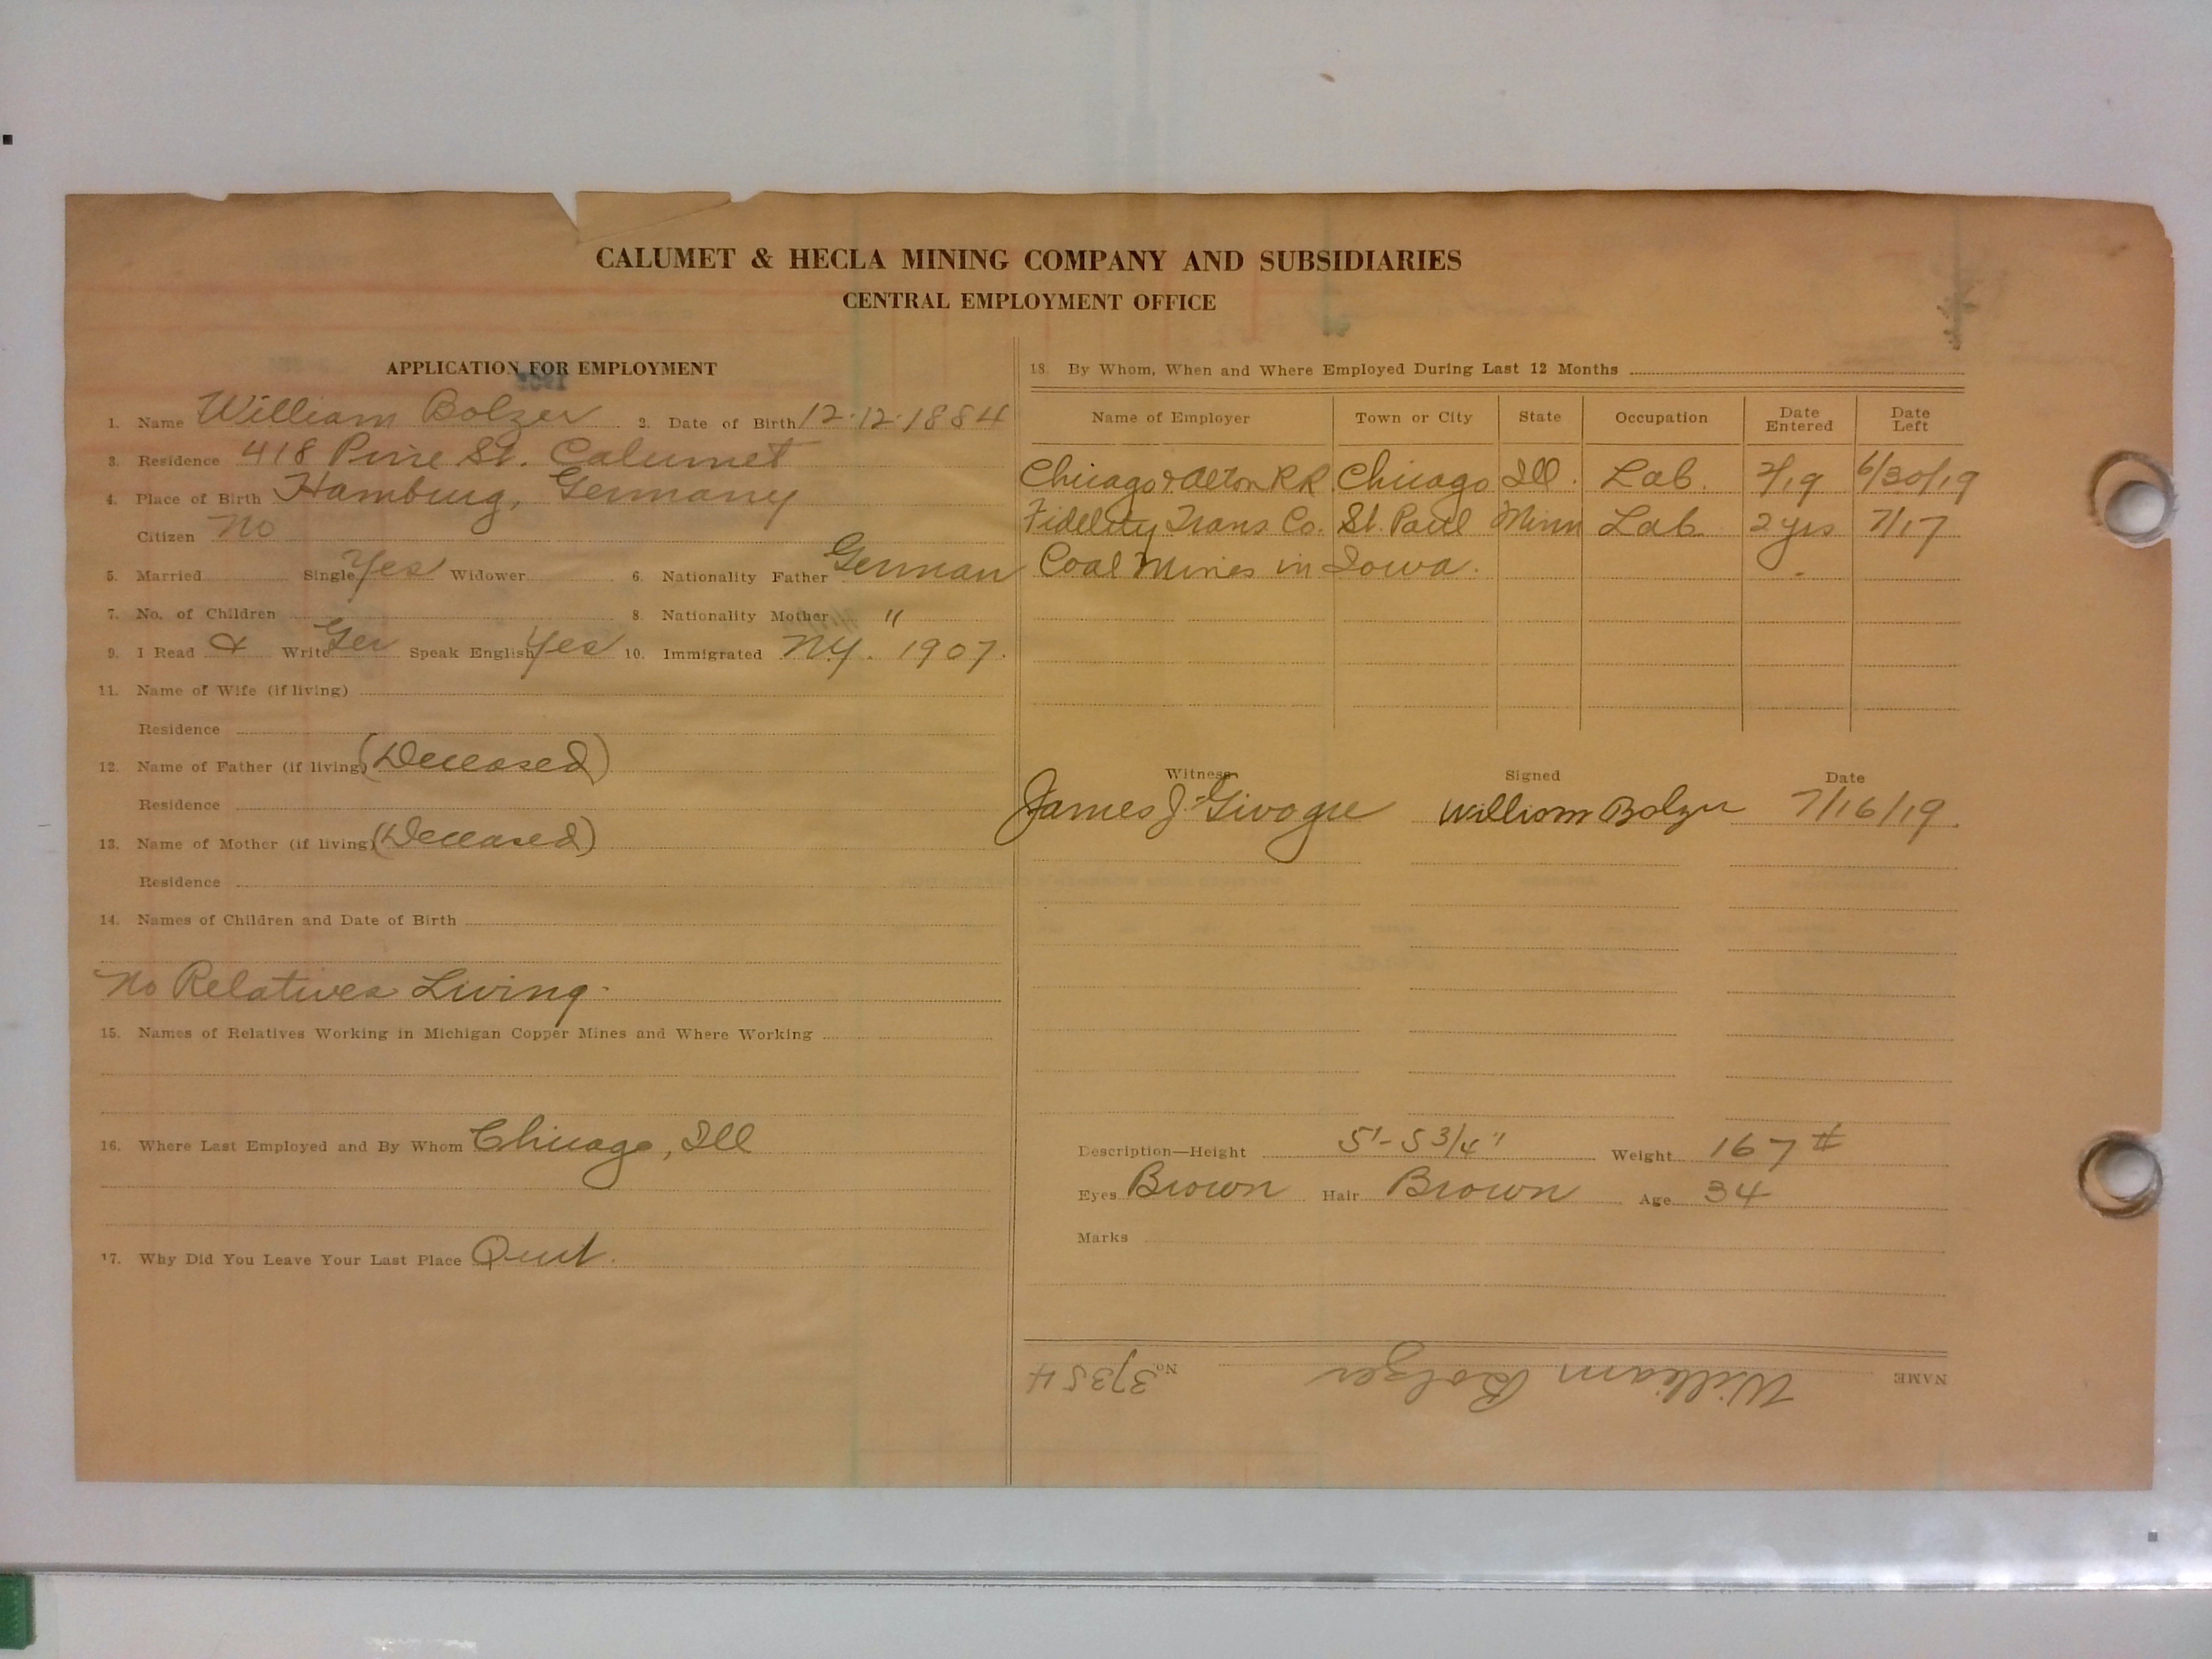 CALUMET & HECLA MINING COMPANY AND SUBSIDIARIES
CENTRAL EMPLOYMENT OFFICE
APPLICATION FOR EMPLOYMENT
1. Name William Bolzer 2. Date of Birth 12.12.1884
3. Residence 418 Pine St. Calumet
4. Place of Birth Hamburg, Germany
Citizen No
5. Married Single Yes Widower 6. Nationality Father German
7. No. of Children 8. Nationality Mother "
9. I Read & Write Ger Speak English Yes 10. Immigrated N.Y. 1907.
11. Name of Wife (if living)
Residence
12. Name of Father (if living) (Deceased)
Residence
13. Name of Mother (if living) (Deceased)
Residence
14. Names of Children and Date of Birth
No Relatives Living.
15. Names of Relatives Working in Michigan Copper Mines and Where Working
16. Where Last Employed and By Whom Chicago, Ill
17. Why Did You Leave Your Last Place Quit.
18. By Whom, When and Where Employed During Last 12 Months
Name of Employer Town or City State Occupation Date Entered Date Left
Chicago & Alton RR. Chicago Ill. Lab. 2/19 6/30/19
Fidelity Trans Co. St. Paul Minn Lab 2 yrs 7/17
Coal Mines in Iowa.
Witness Signed Date
James J. Givogue William Bolzer 7/16/19.
Description—Height 5'-5 3/4" Weight 167 #
Eyes Brown Hair Brown Age 34
Marks
NAME William Bolzer No.